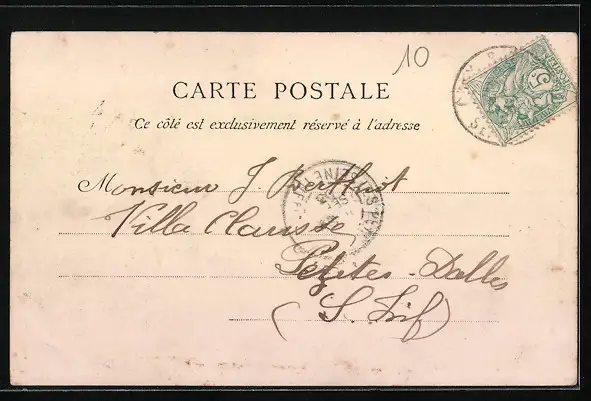 10
CARTE POSTALE
Ce côté est exclusivement réservé à l'adresse
Monsieur J. Berthiot
Villa Clarisse
Petites-Dalles
(S. Inf)